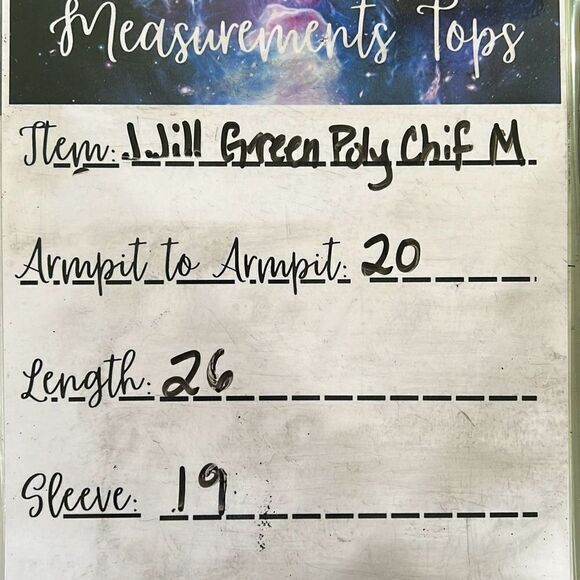 Measurements Tops
Item: J.Jill Green Poly Chif M
Armpit to Armpit: 20
Length: 26
Sleeve: 19